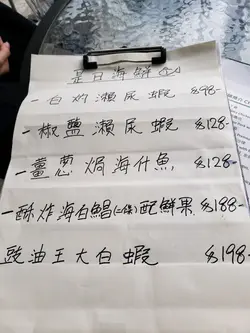 是日海鮮
一白灼瀨尿蝦 $98-
一椒鹽瀨尿蝦 $128-
一薑葱焗海什魚 $128-
一酥炸海白鯧(二條)配鮮果 $188-
豉油王大白蝦 $198-